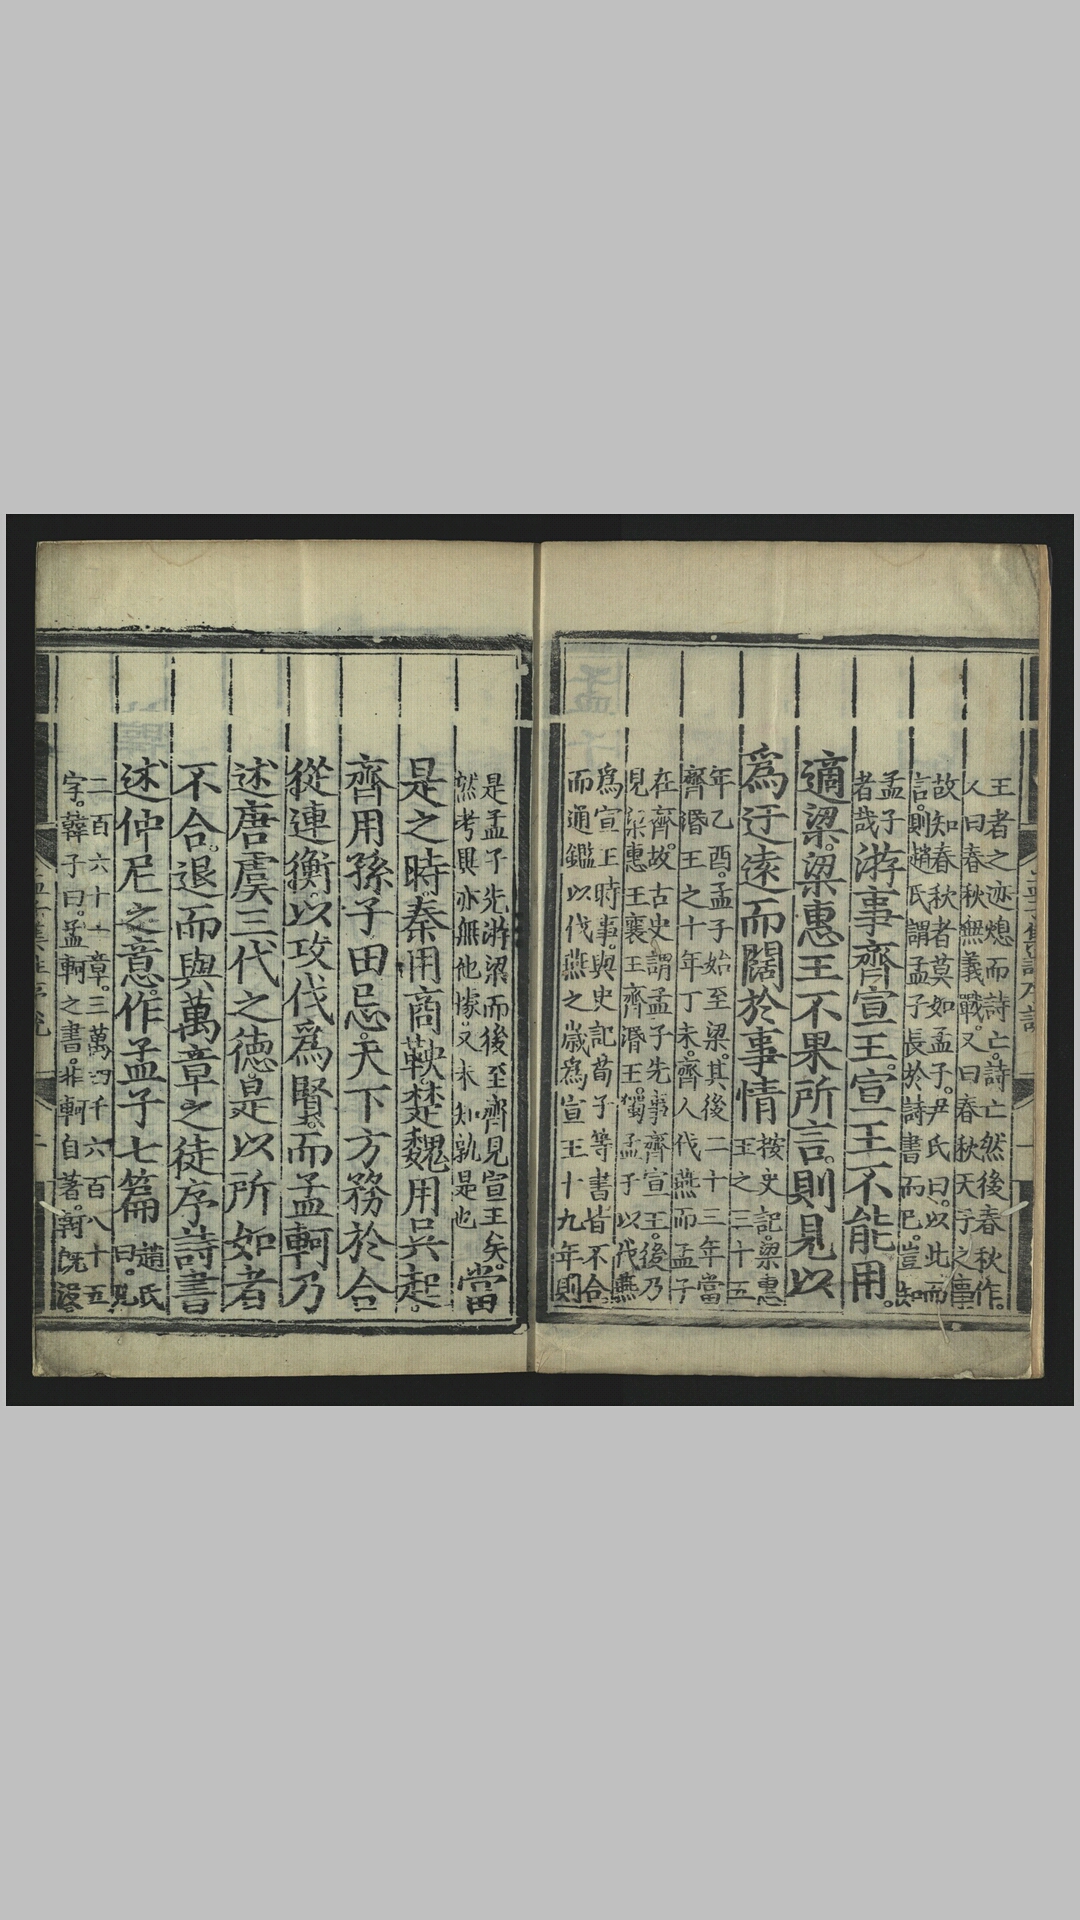 王者之迹熄而詩亡。詩亡然後春秋作。
又曰春秋無義戰。又曰春秋天子之事
故知春秋者莫如孟子。尹氏曰。以此而
言。則趙氏謂孟子長於詩書而已。豈知
孟子
者哉
游事齊宣王。宣王不能用。
適梁。梁惠王不果所言。則見以
爲迂遠而闊於事情
按史記。梁惠
王之三十五
年乙酉。孟子始至梁。其後二十三年當
齊湣王之十年丁未。齊人代燕而孟子
在齊。故古史謂孟子先事齊宣王。後乃
見梁惠王襄王齊湣王。獨孟子以伐燕
爲宣王時事。與史記荀子等書皆不合
而通鑑以伐燕之歲爲宣王十九年則
是孟子先游梁而後至齊見宣王矣。
然考異亦無他據。又未知孰是也
當
是之時。秦用商鞅。楚魏用吳起。
齊用孫子田忌。天下方務於合
從連衡。以攻伐爲賢。而孟軻乃
述唐虞三代之德。是以所如者
不合。退而與萬章之徒序詩書
述仲尼之意。作孟子七篇
趙氏
曰。凡
二百六十一章。三萬四千六百八十五
字。韓子曰。孟軻之書。非軻自著。軻旣沒